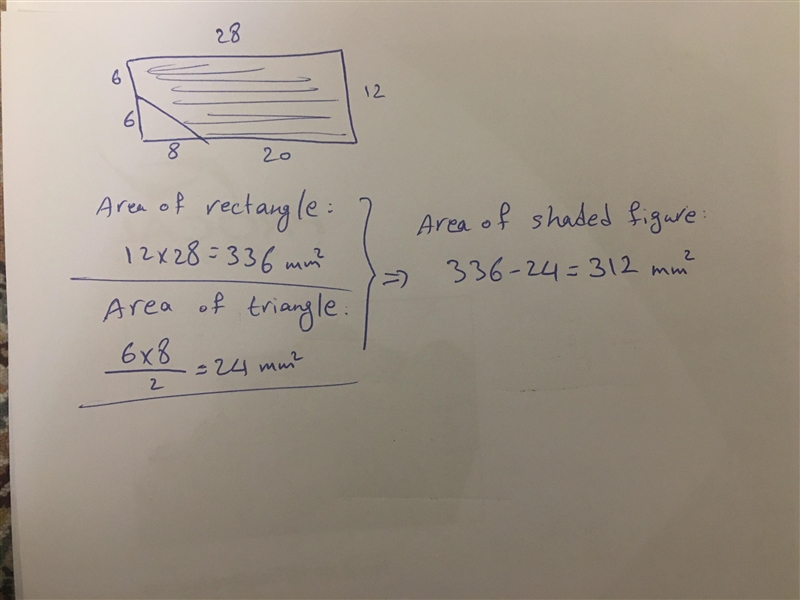 28
6
12
6
8
20
Area of rectangle:
12x28=336 mm²
Area of triangle:
6x8
2
=24 mm²
⇒
Area of shaded figure:
336-24=312 mm²